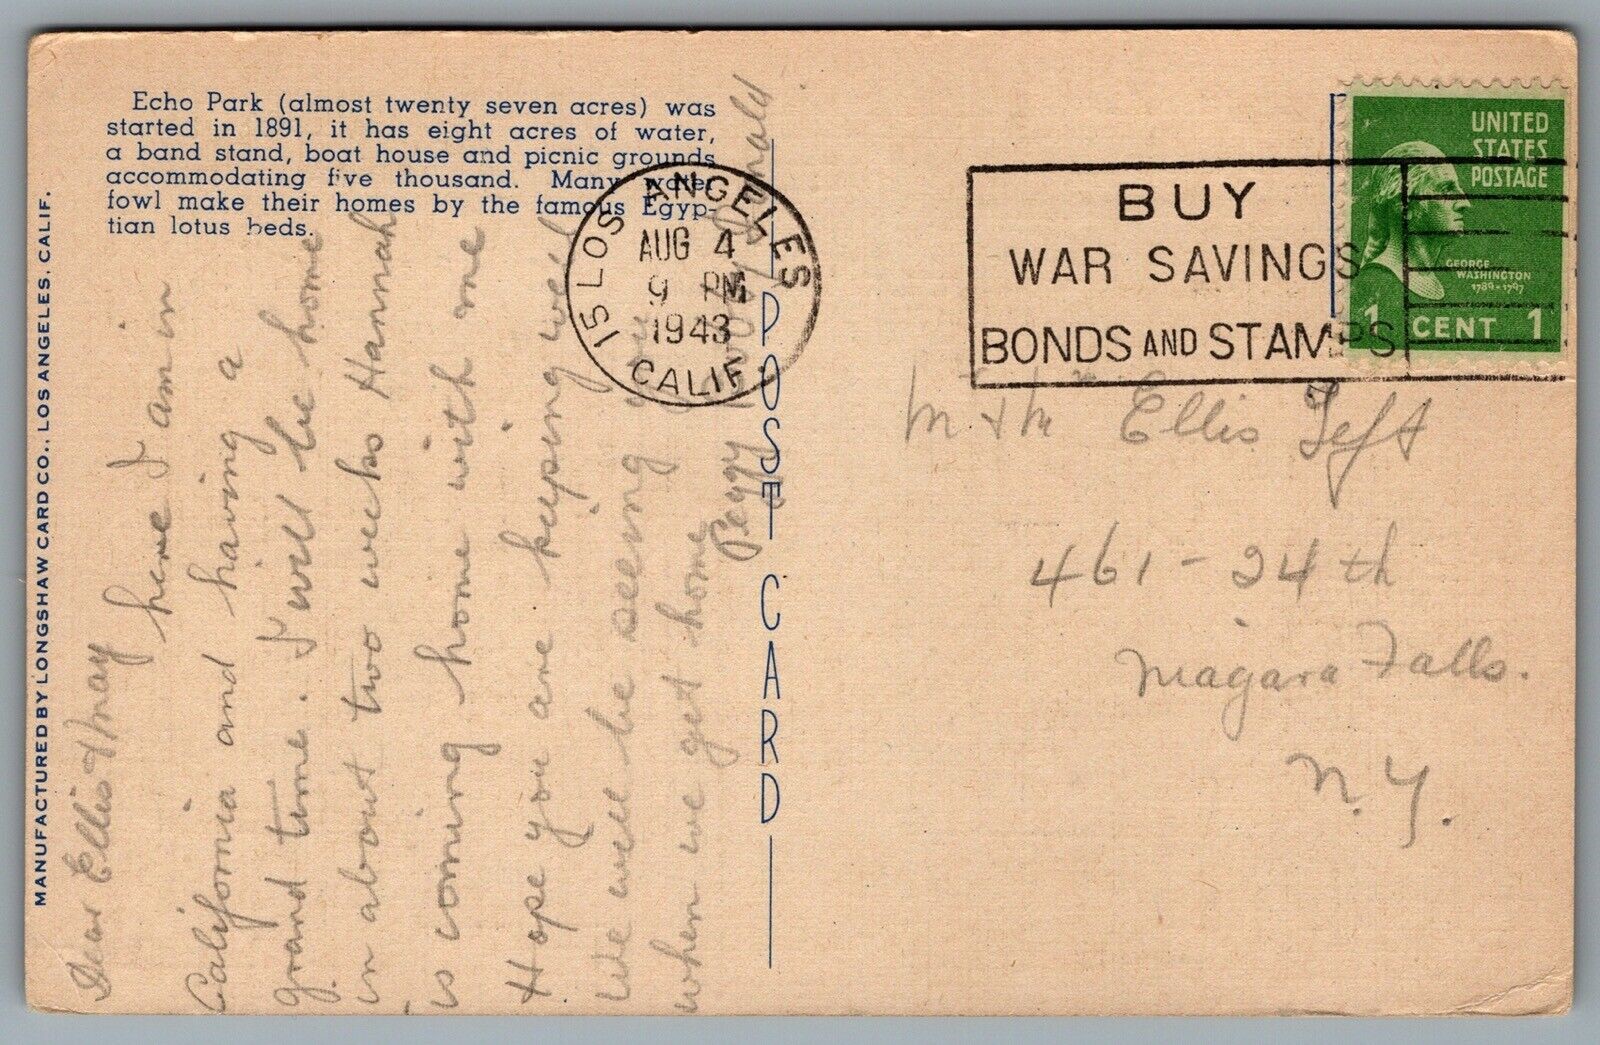 Echo Park (almost twenty seven acres) was
started in 1891, it has eight acres of water,
a band stand, boat house and picnic grounds
accommodating five thousand. Many water
fowl make their homes by the famous Egyp-
tian lotus beds.
MANUFACTURED BY LONGSHAW CARD CO., LOS ANGELES, CALIF.
Dear Ellis & May
here I am in
California and having a
grand time. I will be home
in about two weeks Hannah
is coming home with me
Hope you are keeping well
We will be seeing you
when we get home
Peggy
POST CARD
15 LOS ANGELES
AUG 4
9 PM
1943
CALIF
BUY
WAR SAVINGS
BONDS AND STAMPS
UNITED
STATES
POSTAGE
GEORGE
WASHINGTON
1789-1797
1 CENT 1
Mr & Mr Ellis Teft
461-24th
Niagara Falls.
N.Y.